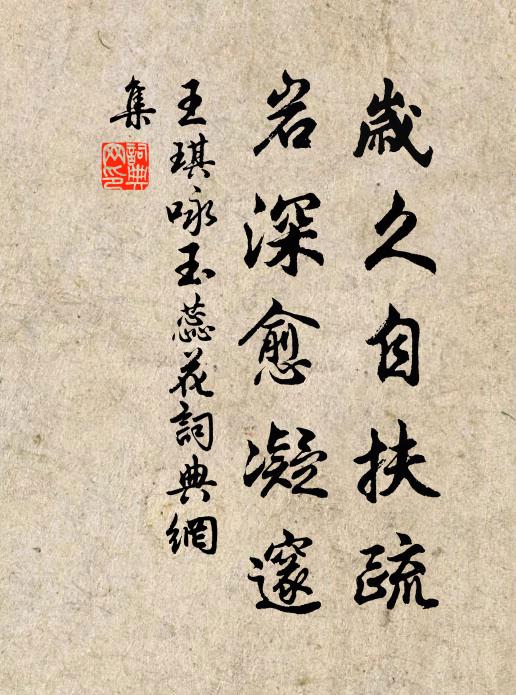 歲久自扶疏
岩深愈凝邃
王琪咏玉蕊花詞典網
集
詞典網印